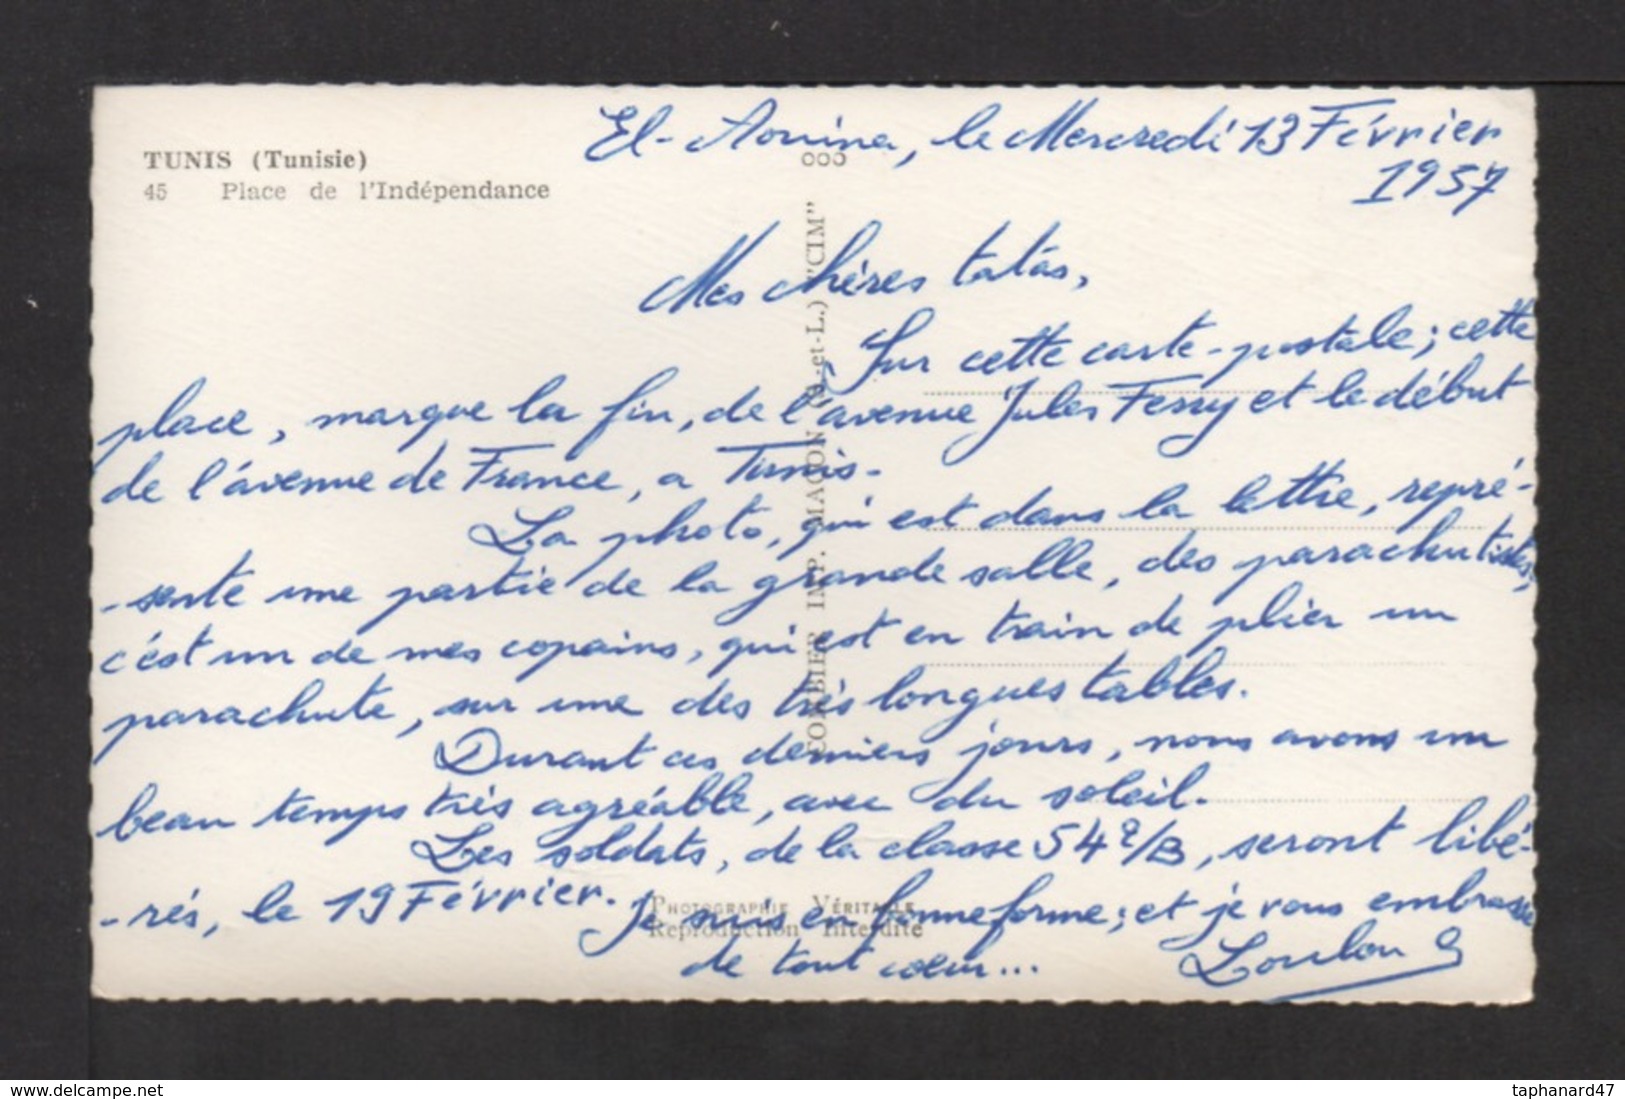 TUNIS (Tunisie)
45 Place de l'Indépendance
El-Aouina, le Mercredi 13 Février
1957
Mes chères tatas,
Sur cette carte-postale; cette
place, marque la fin, de l'avenue Jules Ferry et le début
de l'avenue de France, a Tunis.
La photo, qui est dans la lettre, repré-
-sente une partie de la grande salle, des parachutistes,
c'est un de mes copains, qui est en train de plier un
parachute, sur une des très longues tables.
Durant ces derniers jours, nous avons un
beau temps très agréable, avec du soleil.
Les soldats, de la classe 54 2/B, seront libé-
-rés, le 19 Février. Je suis en bonne forme; et je vous embrasse
de tout cœur...
Loulou
COMBIER IMP. MACON (S.-et-L.) "CIM"
PHOTOGRAPHIE VÉRITABLE
Reproduction Interdite
delcampe.net
taphanard47